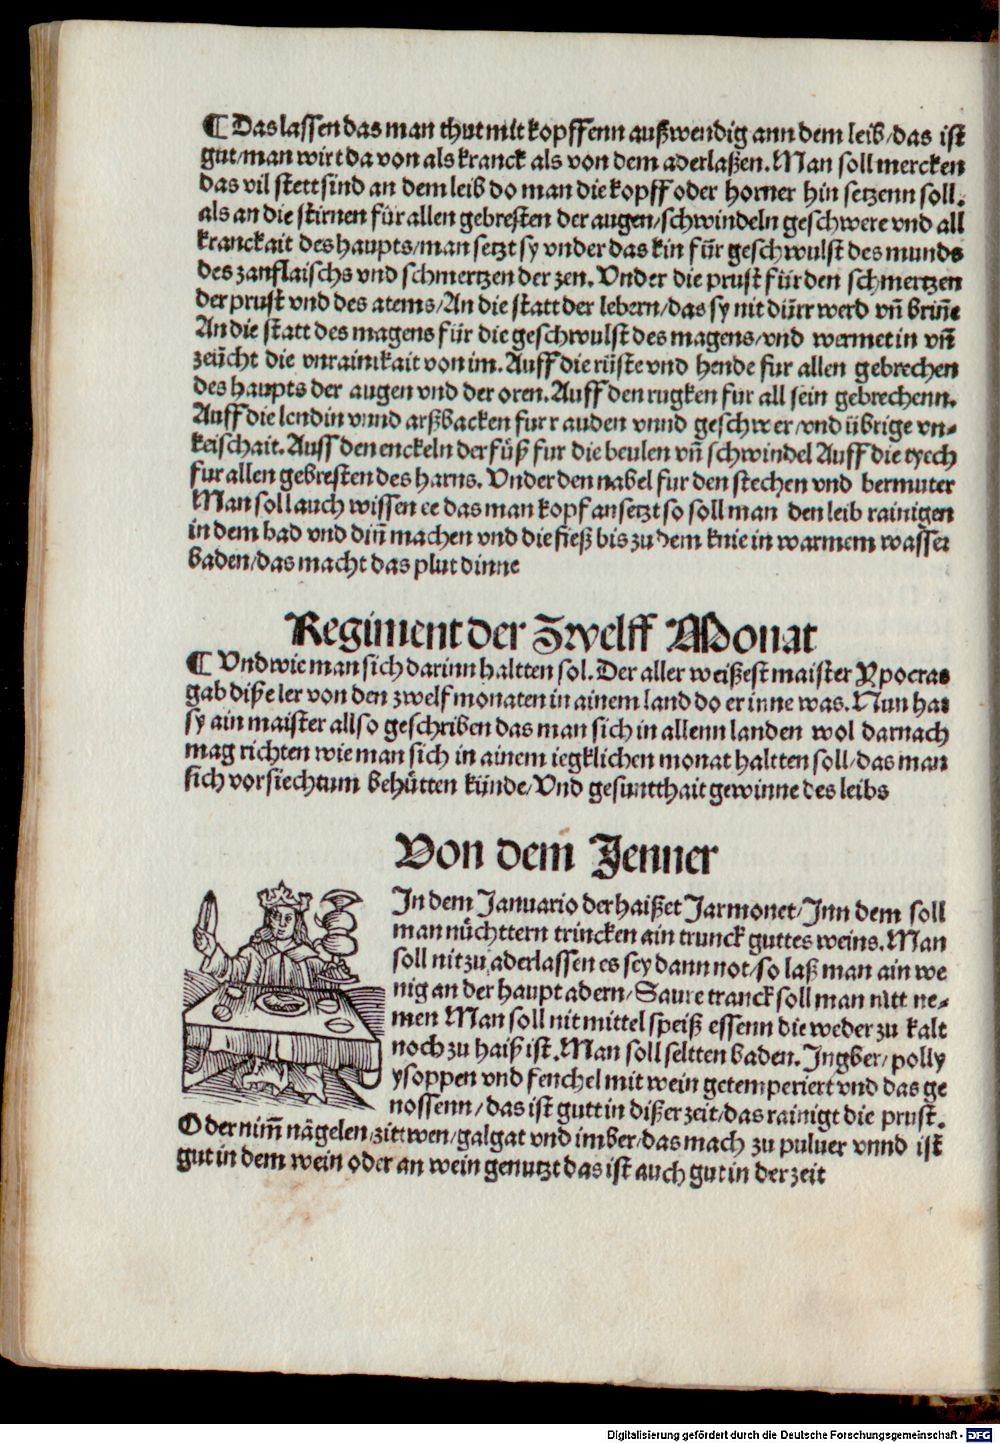 ¶ Das lassen das man thut mit kopffenn außwendig ann dem leib/das ist
gut/man wirt da von als kranck als von dem aderlaßen. Man soll mercken
das vil stett sind an dem leib do man die kopff oder horner hin setzenn soll.
als an die stirnen für allen gebresten der augen/schwindeln geschwere vnd all
kranckait des haupts/man setzt sy vnder das kin für geschwulst des munds
des zanflaischs vnd schmertzen der zen. Vnder die prust für den schmertzen
der prust vnd des atems/An die statt der lebern/das sy nit dürr werd vñ briñe
An die statt des magens für die geschwulst des magens/vnd wermet in vñ
zeücht die vnrainikait von im. Auff die rüste vnd hende fur allen gebrechen
des haupts der augen vnd der oren. Auff den rugken für all sein gebrechenn.
Auff die lendin vnnd arßbacken fur rauden vnnd geschwer/vnd übrige vn-
keischait. Auff den enckeln der füß fur die beulen vñ schwindel Auff die tyech
fur allen gebresten des harns. Vnder den nabel fur den stechen vnd bermuter
Man soll auch wissen ee das man kopf ansetzt so soll man den leib rainigen
in dem bad vnd diñ machen vnd die fieß bis zu dem knie in warmem wasser
baden/das macht das plut dinne
Regiment der Zwelff Monat
¶ Vnd wie man sich darinn haltten sol. Der aller weißest maister Ypocras
gab diße ler von den zwelf monaten in ainem land do er inne was. Nun hat
sy ain maister allso geschriben das man sich in allenn landen wol darnach
mag richten wie man sich in ainem iegklichen monat haltten soll/das man
sich vor siechtum behütten künde/Vnd gesuntthait gewinne des leibs
Von dem Jenner
In dem Januario der haißet Jarmonet/Inn dem soll
man nüchttern trincken ain trunck guttes weins. Man
soll nit zu aderlassen es sey dann not/so laß man ain we
nig an der haupt adern/Saure tranck soll man nitt ne-
men Man soll nit mittel speiß essenn die weder zu kalt
noch zu haiß ist. Man soll seltten baden. Ingber/polly
ysoppen vnd fenchel mit wein getemperiert vnd das ge
nossenn/das ist gutt in dißer zeit/das rainigt die prust.
Oder nim̃ nägelen/zittwen/galgat vnd imber/das mach zu puluer vnnd ist
gut in dem wein oder an wein genutzt das ist auch gut in der zeit
Digitalisierung gefördert durch die Deutsche Forschungsgemeinschaft - DFG